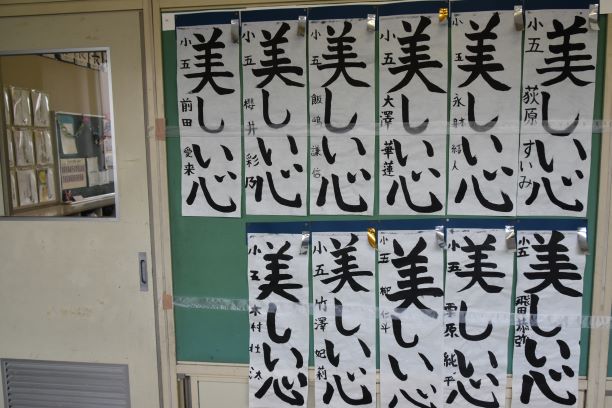 美しい心
小五 前田 愛来
美しい心
小五 櫻井 彩乃
美しい心
小五 飯嶋 謙信
美しい心
小五 大澤 華蓮
美しい心
小五 永射
美しい心
小五 荻原 すいみ
美しい心
小五 木村
美しい心
小五 竹澤 妃莉
美しい心
小五 柳 仁斗
美しい心
小五 雲原 純平
美しい心
小五 飛田 恭弥